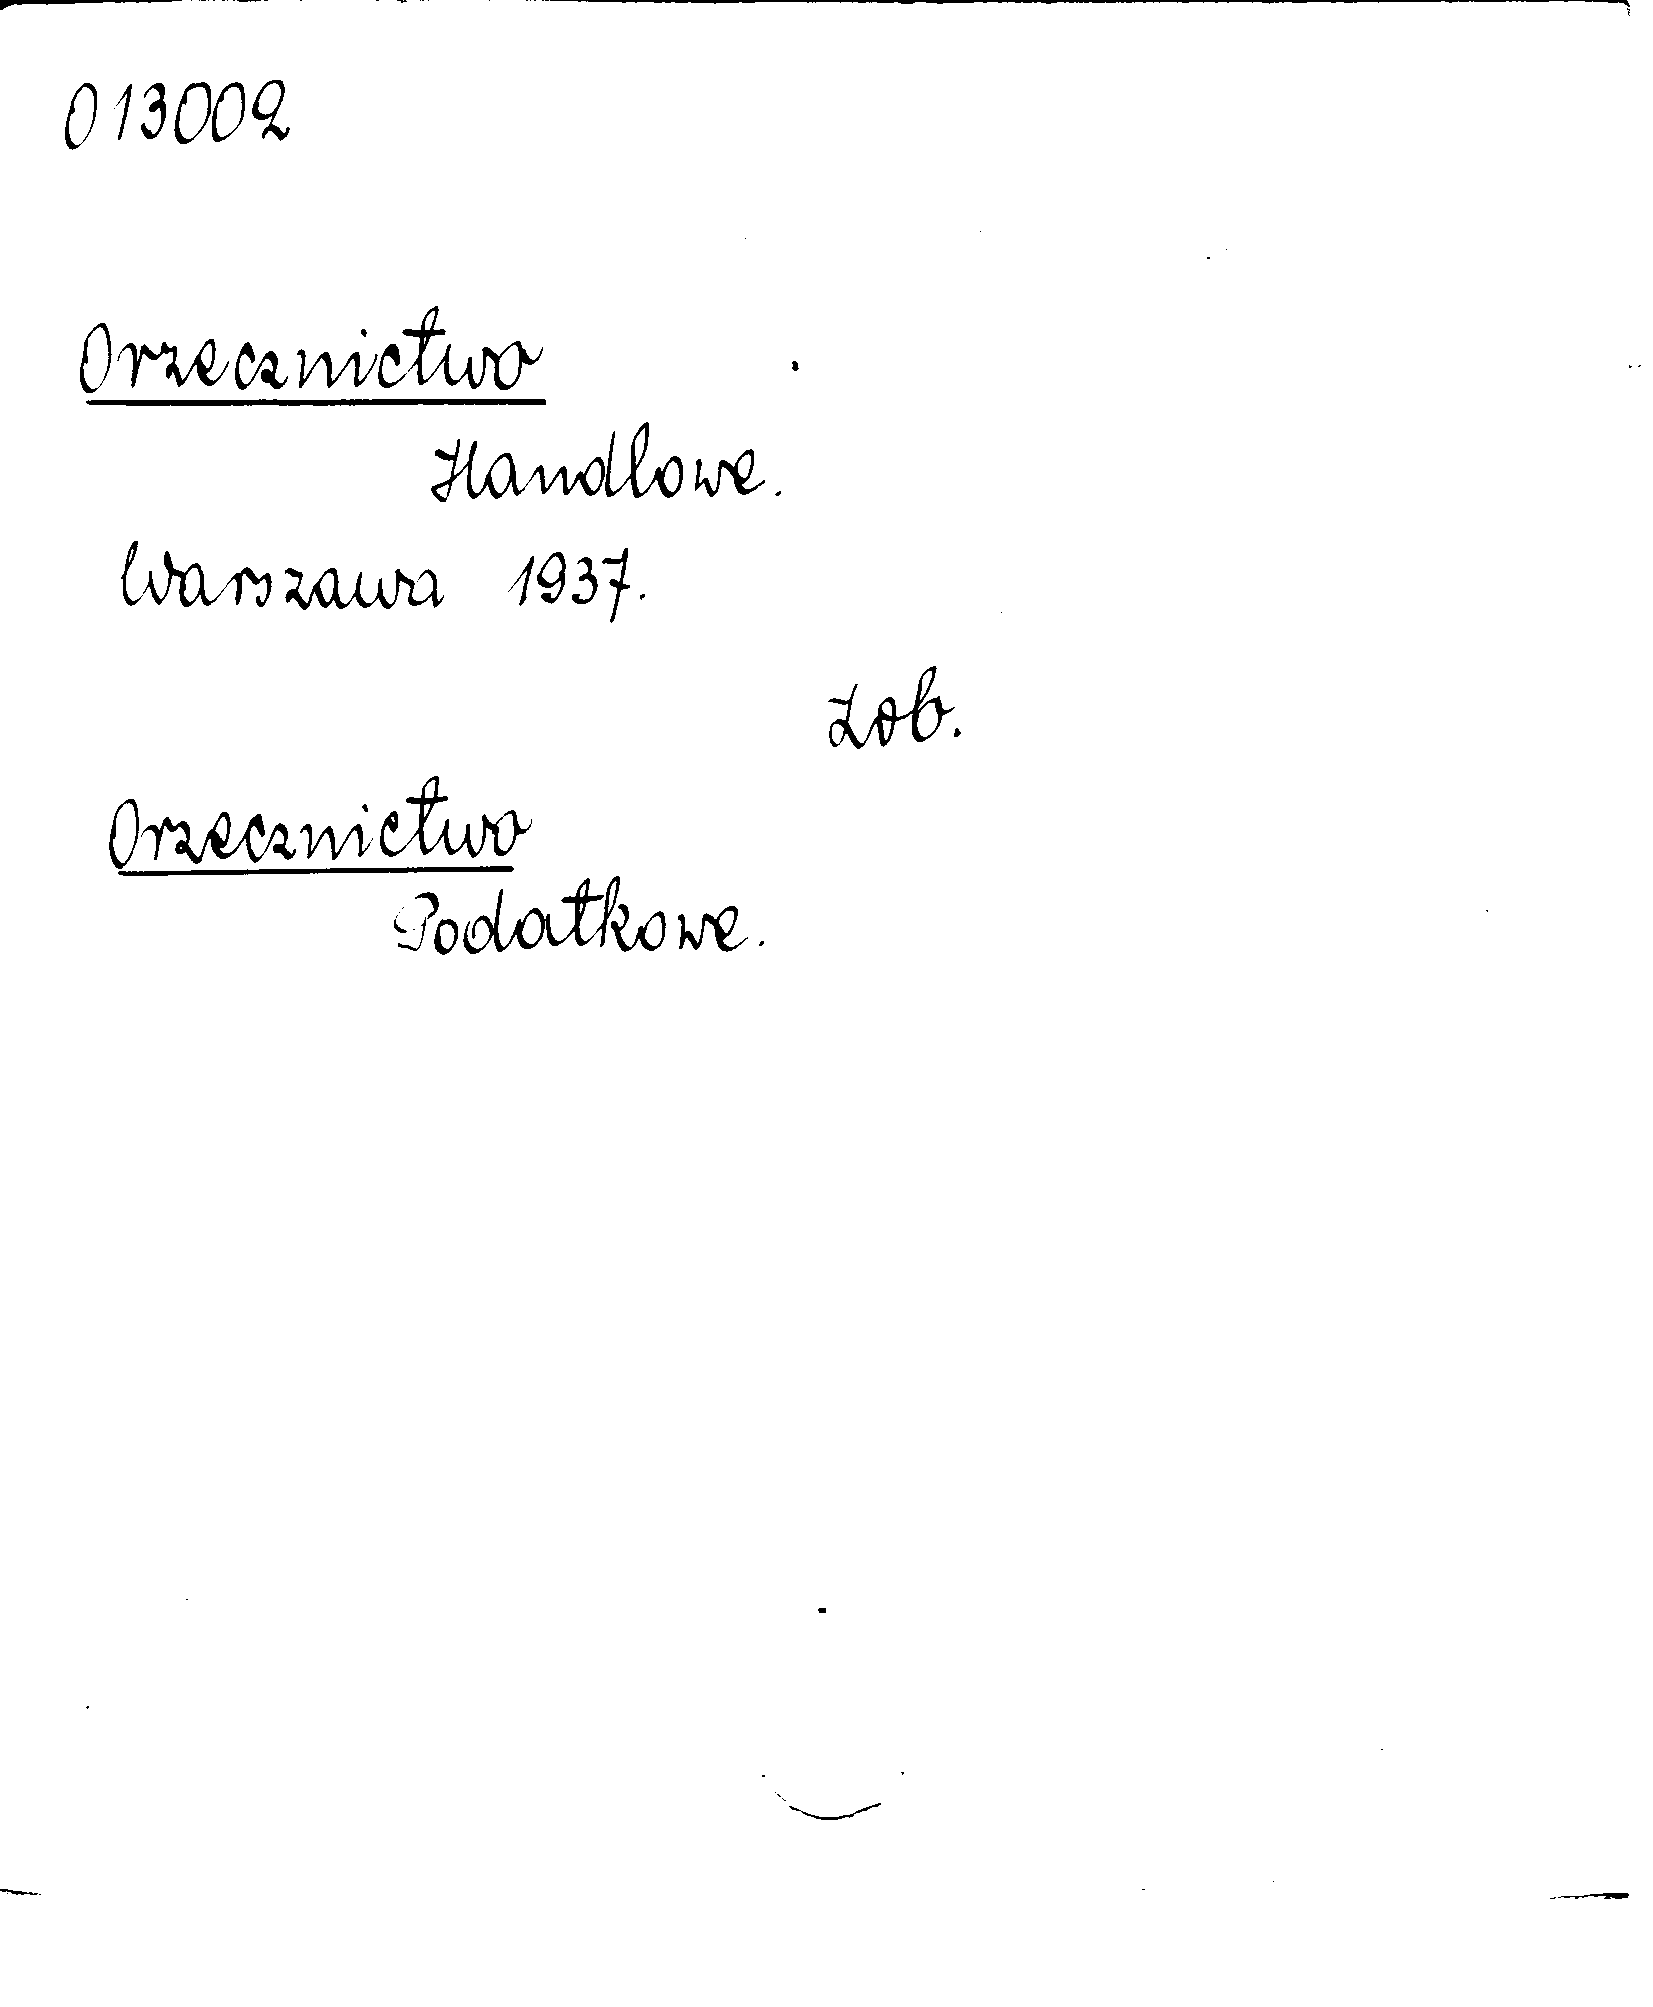 013002
Orzecznictwo
Handlowe.
Warszawa 1937.
Zob.
Orzecznictwo
Podatkowe.